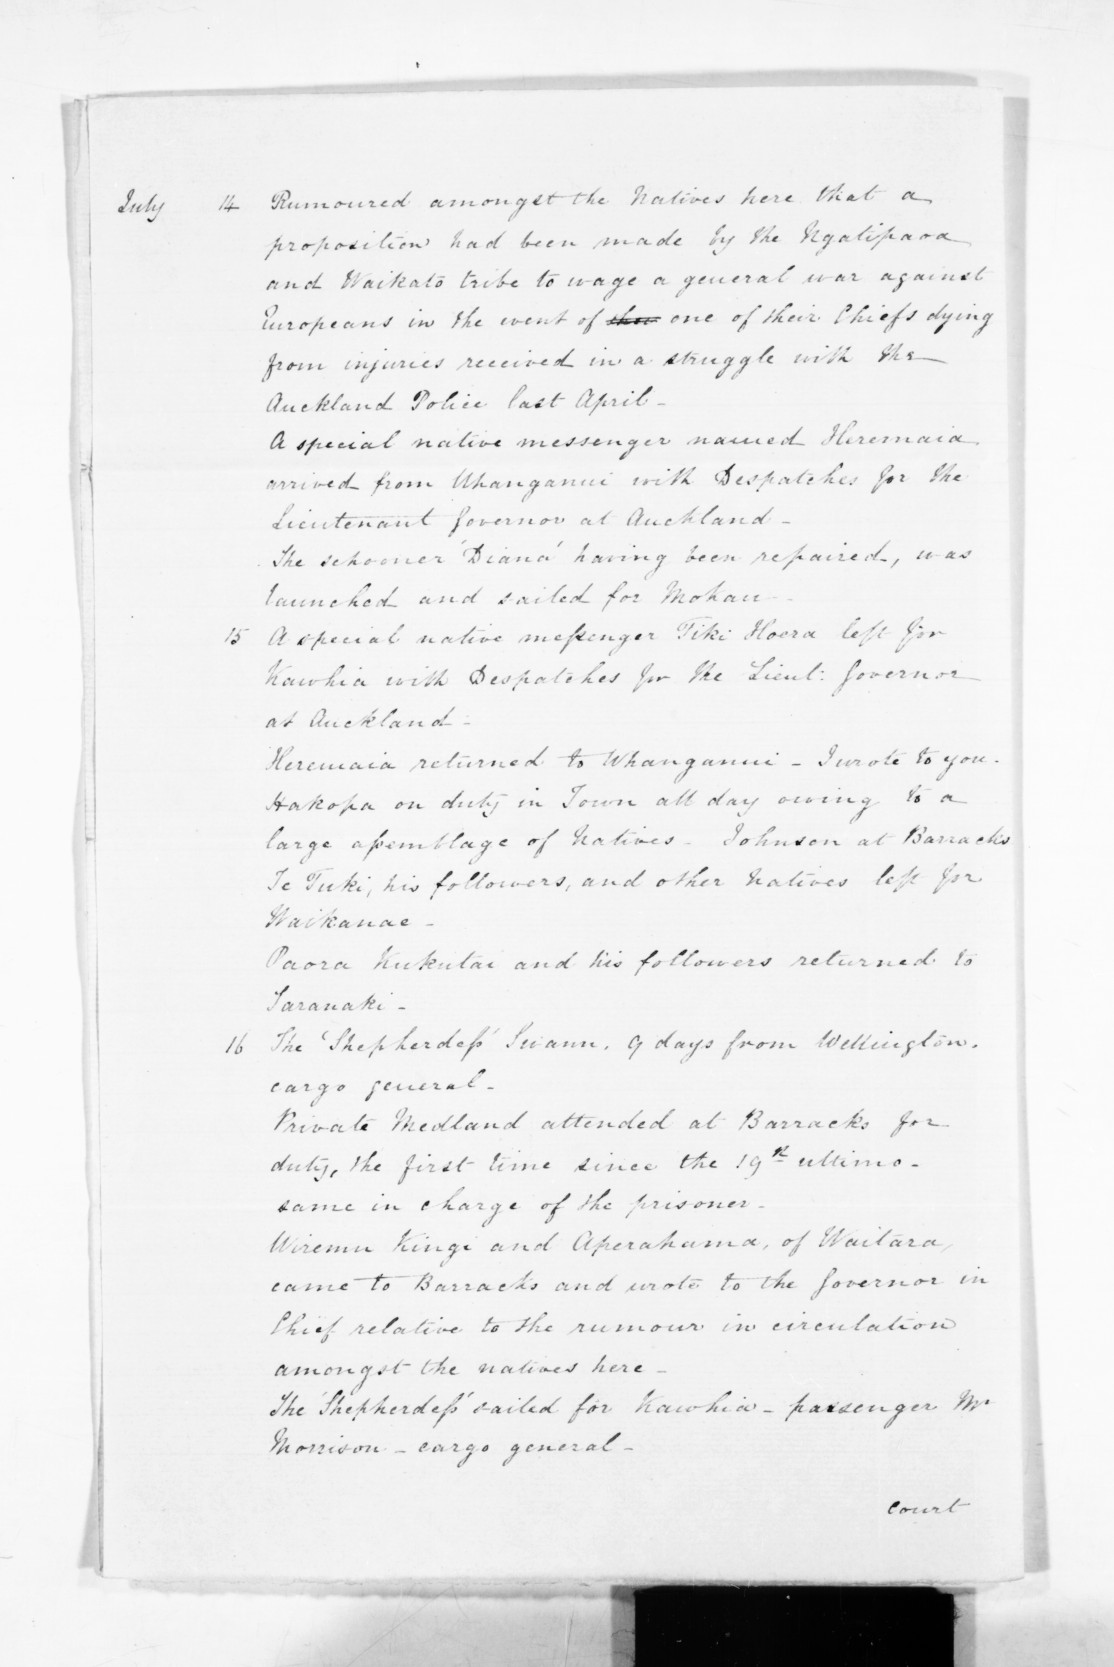 July 14 Rumoured amongst the Natives here that a
proposition had been made by the Ngatipaoa
and Waikato tribe to wage a general war against
Europeans in the event of one of their Chiefs dying
from injuries received in a struggle with the
Auckland Police last April -
A special native messenger named Heremaia
arrived from Whanganui with Despatches for the
Lieutenant Governor at Auckland -
The schooner 'Diana' having been repaired, was
launched and sailed for Mokau -
15 A special native messenger Tiki Hoera left for
Kawhia with Despatches for the Lieut: Governor
at Auckland -
Heremaia returned to Whanganui - I wrote to you.
Hakopa on duty in Town all day owing to a
large assemblage of Natives - Johnson at Barracks
Te Tuki, his followers, and other Natives left for
Waikanae -
Paora Kukutai and his followers returned to
Taranaki -
16 The 'Shepherdess' Swann. 9 days from Wellington.
cargo general -
Private Medland attended at Barracks for
duty, the first time since the 19th ultimo -
same in charge of the prisoner -
Wiremu Kingi and Aperahama, of Waitara,
came to Barracks and wrote to the Governor in
Chief relative to the rumour in circulation
amongst the natives here -
The 'Shepherdess' sailed for Kawhia - passenger Mr
Morrison - cargo general -
court